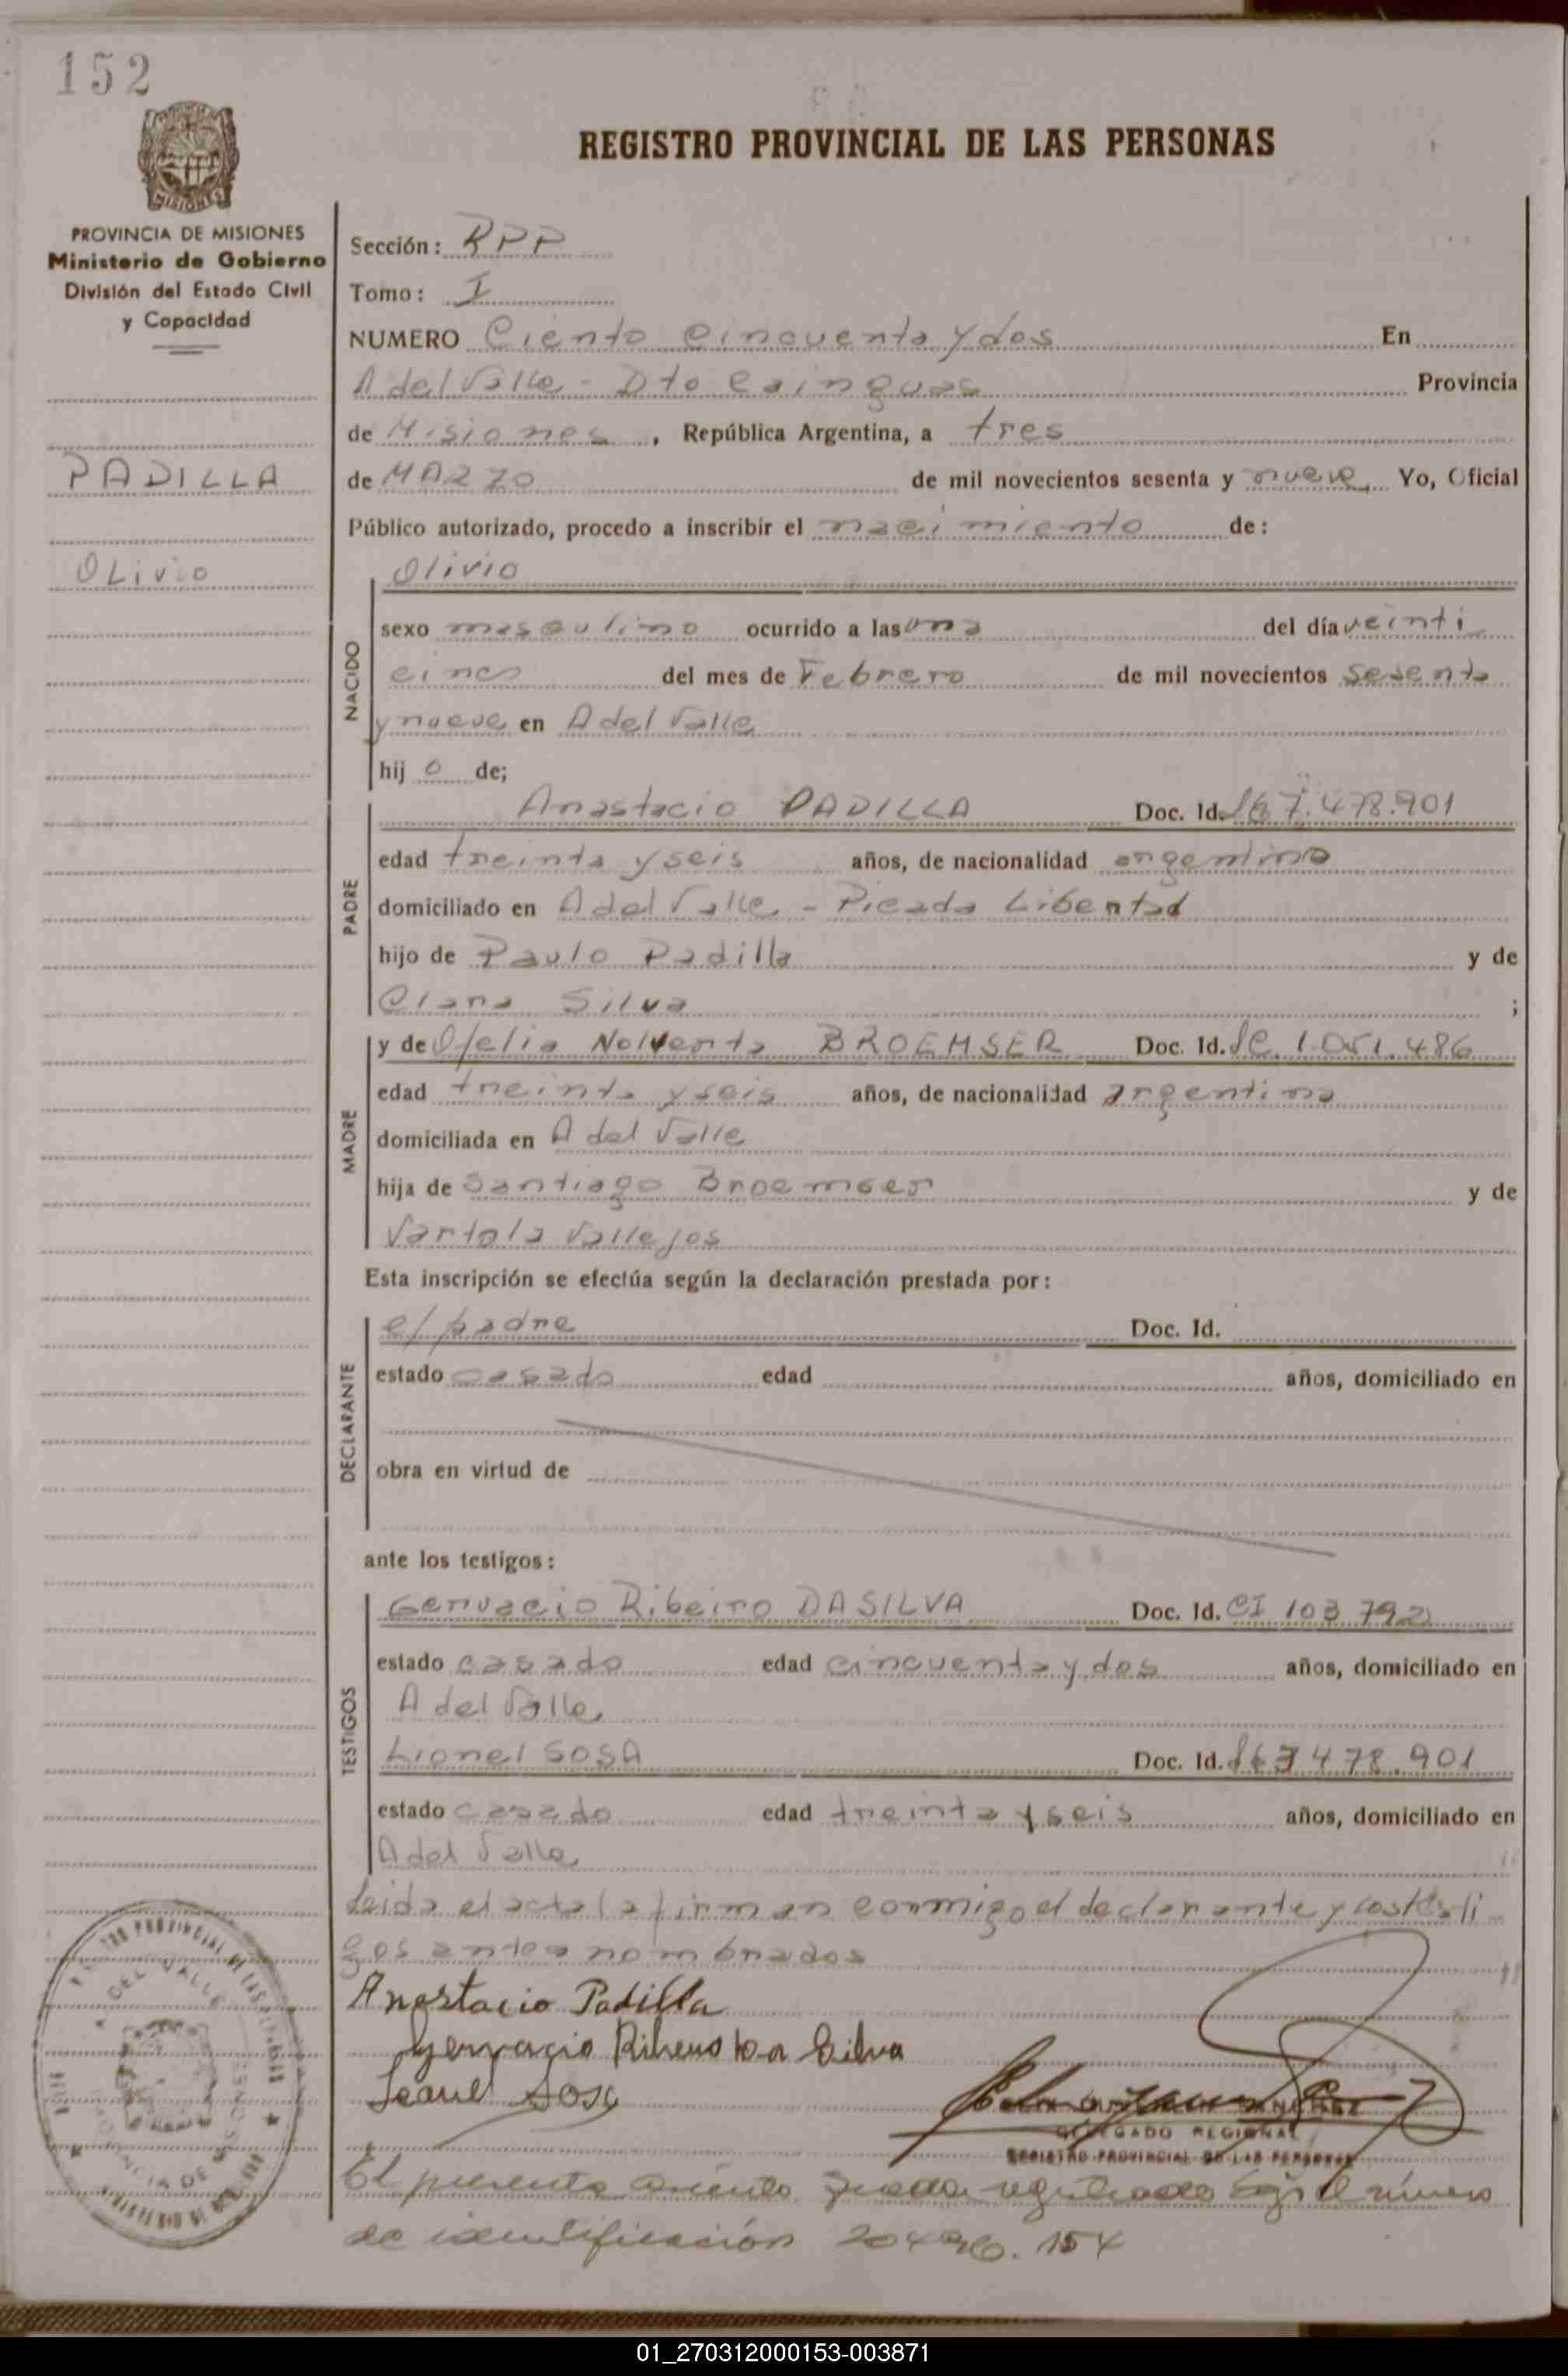 152
REGISTRO PROVINCIAL DE LAS PERSONAS
PROVINCIA DE MISIONES
Ministerio de Gobierno
División del Estado Civil
y Capacidad
PADILLA
OLivio
Sección: RPP
Tomo: I
NUMERO Ciento cincuenta y dos En
A del Valle - Dto Cainguas Provincia
de Misiones, República Argentina, a tres
de MARZO de mil novecientos sesenta y nueve, Yo, Oficial
Público autorizado, procedo a inscribir el nacimiento de:
NACIDO
Olivio
sexo masculino ocurrido a las una del día veinti
cinco del mes de Febrero de mil novecientos sesenta
y nueve en A del Valle
hij o de;
PADRE
Anastacio PADILLA Doc. Id. 7.478.901
edad treinta y seis años, de nacionalidad argentino
domiciliado en A del Valle - Picada Libertad
hijo de Paulo Padilla y de
Clara Silva ;
MADRE
y de Ofelia Nolverta BROEMSER Doc. Id. LC. 1.051.486
edad treinta y seis años, de nacionalidad argentina
domiciliada en A del Valle
hija de Santiago Broemser y de
Vartola Vallejos
Esta inscripción se efectúa según la declaración prestada por:
DECLARANTE
el padre Doc. Id.
estado casado edad años, domiciliado en
obra en virtud de
ante los testigos:
TESTIGOS
Gervacio Ribeiro DASILVA Doc. Id. CI 103 792
estado casado edad cincuenta y dos años, domiciliado en
A del Valle
Lionel SOSA Doc. Id. 7 478.901
estado casado edad treinta y seis años, domiciliado en
A del Valle
Leida el acta la firman conmigo el declarante y los testi
gos antes nombrados
Anastacio Padilla
Gervacio Ribeiro Da Silva
Leanel Sosa
SANCHEZ
DELEGADO REGIONAL
REGISTRO PROVINCIAL DE LAS PERSONAS
El presente asiento queda registrado bajo el número
de identificación 20496.154
DEL VALLE
PROVINCIA DE MISIONES
01_270312000153-003871